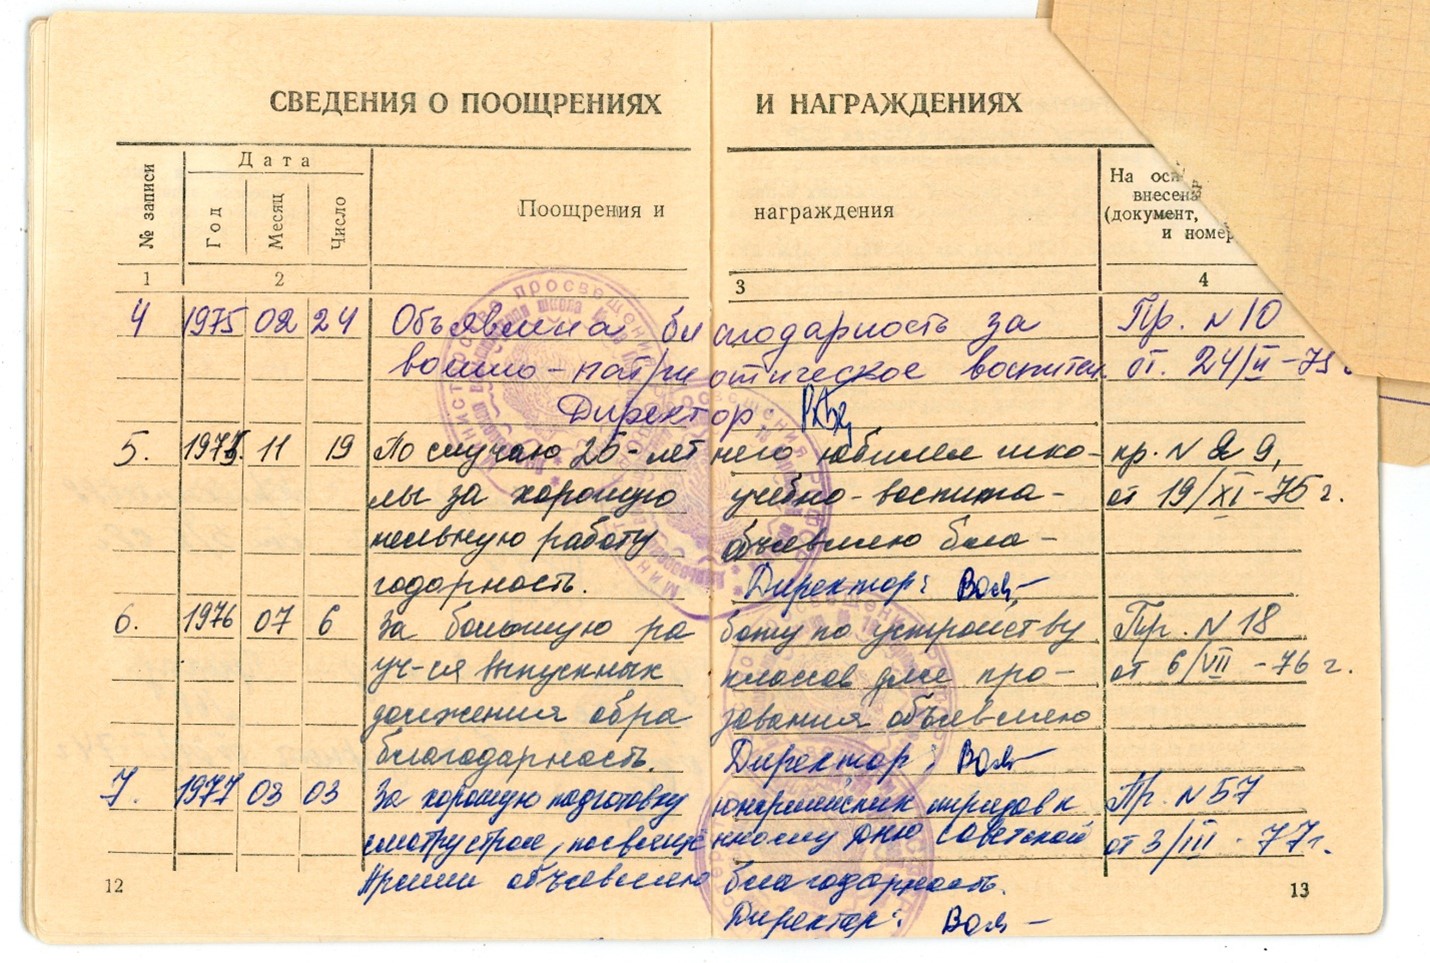 СВЕДЕНИЯ О ПООЩРЕНИЯХ И НАГРАЖДЕНИЯХ
№ записи
Дата
Год
Месяц
Число
Поощрения и награждения
На осн
внесена
(документ,
и номер
1 2 3 4
4 1975 02 24 Объявлена благодарность за Пр. N 10
военно-патриотическое воспитан. от. 24/II-75
Директор:
5. 1975. 11 19 По случаю 25-летнего юбилея шко- пр. N 29,
лы за хорошую учебно-воспита- от 19/XI-75 г.
тельную работу объявляю бла-
годарность. Директор:
6. 1976 07 6 За большую работу по устройству Пр. N 18
уч-ся выпускных классов для про- от 6/VII-76 г.
должения образования объявляю
благодарность. Директор:
7. 1977 03 03 За хорошую подготовку юнармейских отрядов к Пр. N 57
смотру строя, посвященному дню Советской от 3/III-77г.
Армии объявляю благодарность.
Директор:
12 13